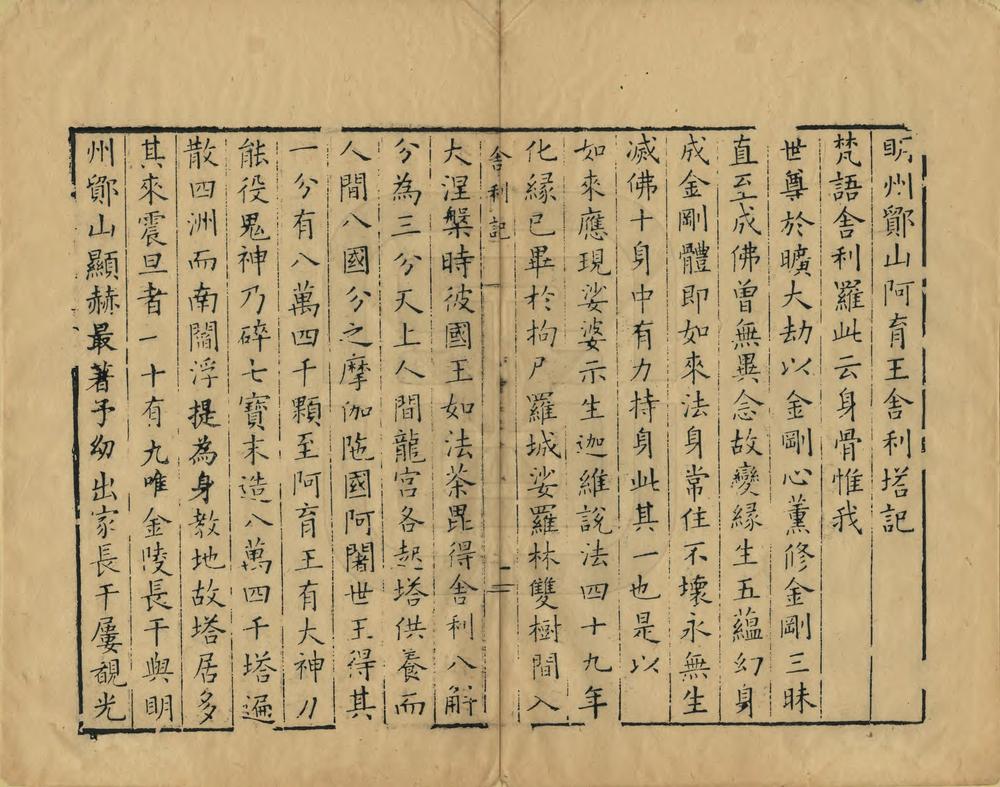 明州鄮山阿育王舍利塔記
梵語舍利羅此云身骨惟我
世尊於曠大劫以金剛心薰修金剛三昧
直至成佛曾無異念故變緣生五蘊幻身
成金剛體即如來法身常住不壞永無生
滅佛十身中有力持身此其一也是以
如來應現娑婆示生迦維說法四十九年
化緣已畢於拘尸羅城娑羅林雙樹間入
舍利記 二
大涅槃時彼國王如法荼毘得舍利八斛
分為三分天上人間龍宮各起塔供養而
人間八國分之摩伽陁國阿闍世王得其
一分有八萬四千顆至阿育王有大神力
能役鬼神乃碎七寶末造八萬四千塔遍
散四洲而南閻浮提為身教地故塔居多
其來震旦者一十有九唯金陵長干與明
州鄮山顯赫最著予幼出家長干屢覩光